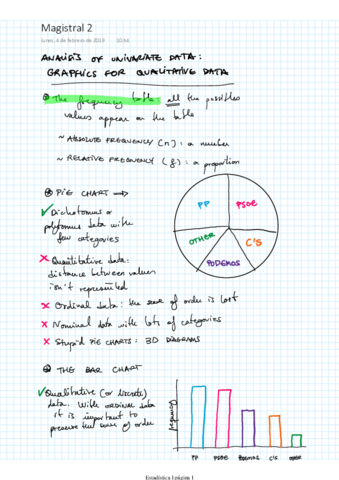 Magistral 2
lunes, 4 de febrero de 2019 10:34
ANALYSIS OF UNIVARIATE DATA:
GRAPHICS FOR QUALITATIVE DATA
The frequency table: all the possibles
values appear on the table
~ ABSOLUTE FREQUENCY (n): a number
~ RELATIVE FREQUENCY (f): a proportion
PIE CHART →
✓ Dichotomous or
polytomous data with
few categories
PP
PSOE
OTHER
C'S
PODEMOS
✗ Quantitative data:
distance between values
isn't represented
✗ Ordinal data: the sense of order is lost
✗ Nominal data with lots of categories
✗ Stupid PIE CHARTS: 3D DIAGRAMS
THE BAR CHART
✓ Qualitative (or discrete)
data. With ordinal data
it is important to
preserve the sense of order
frequency
PP PSOE PODEMOS C'S OTHER
Estadística I página 1